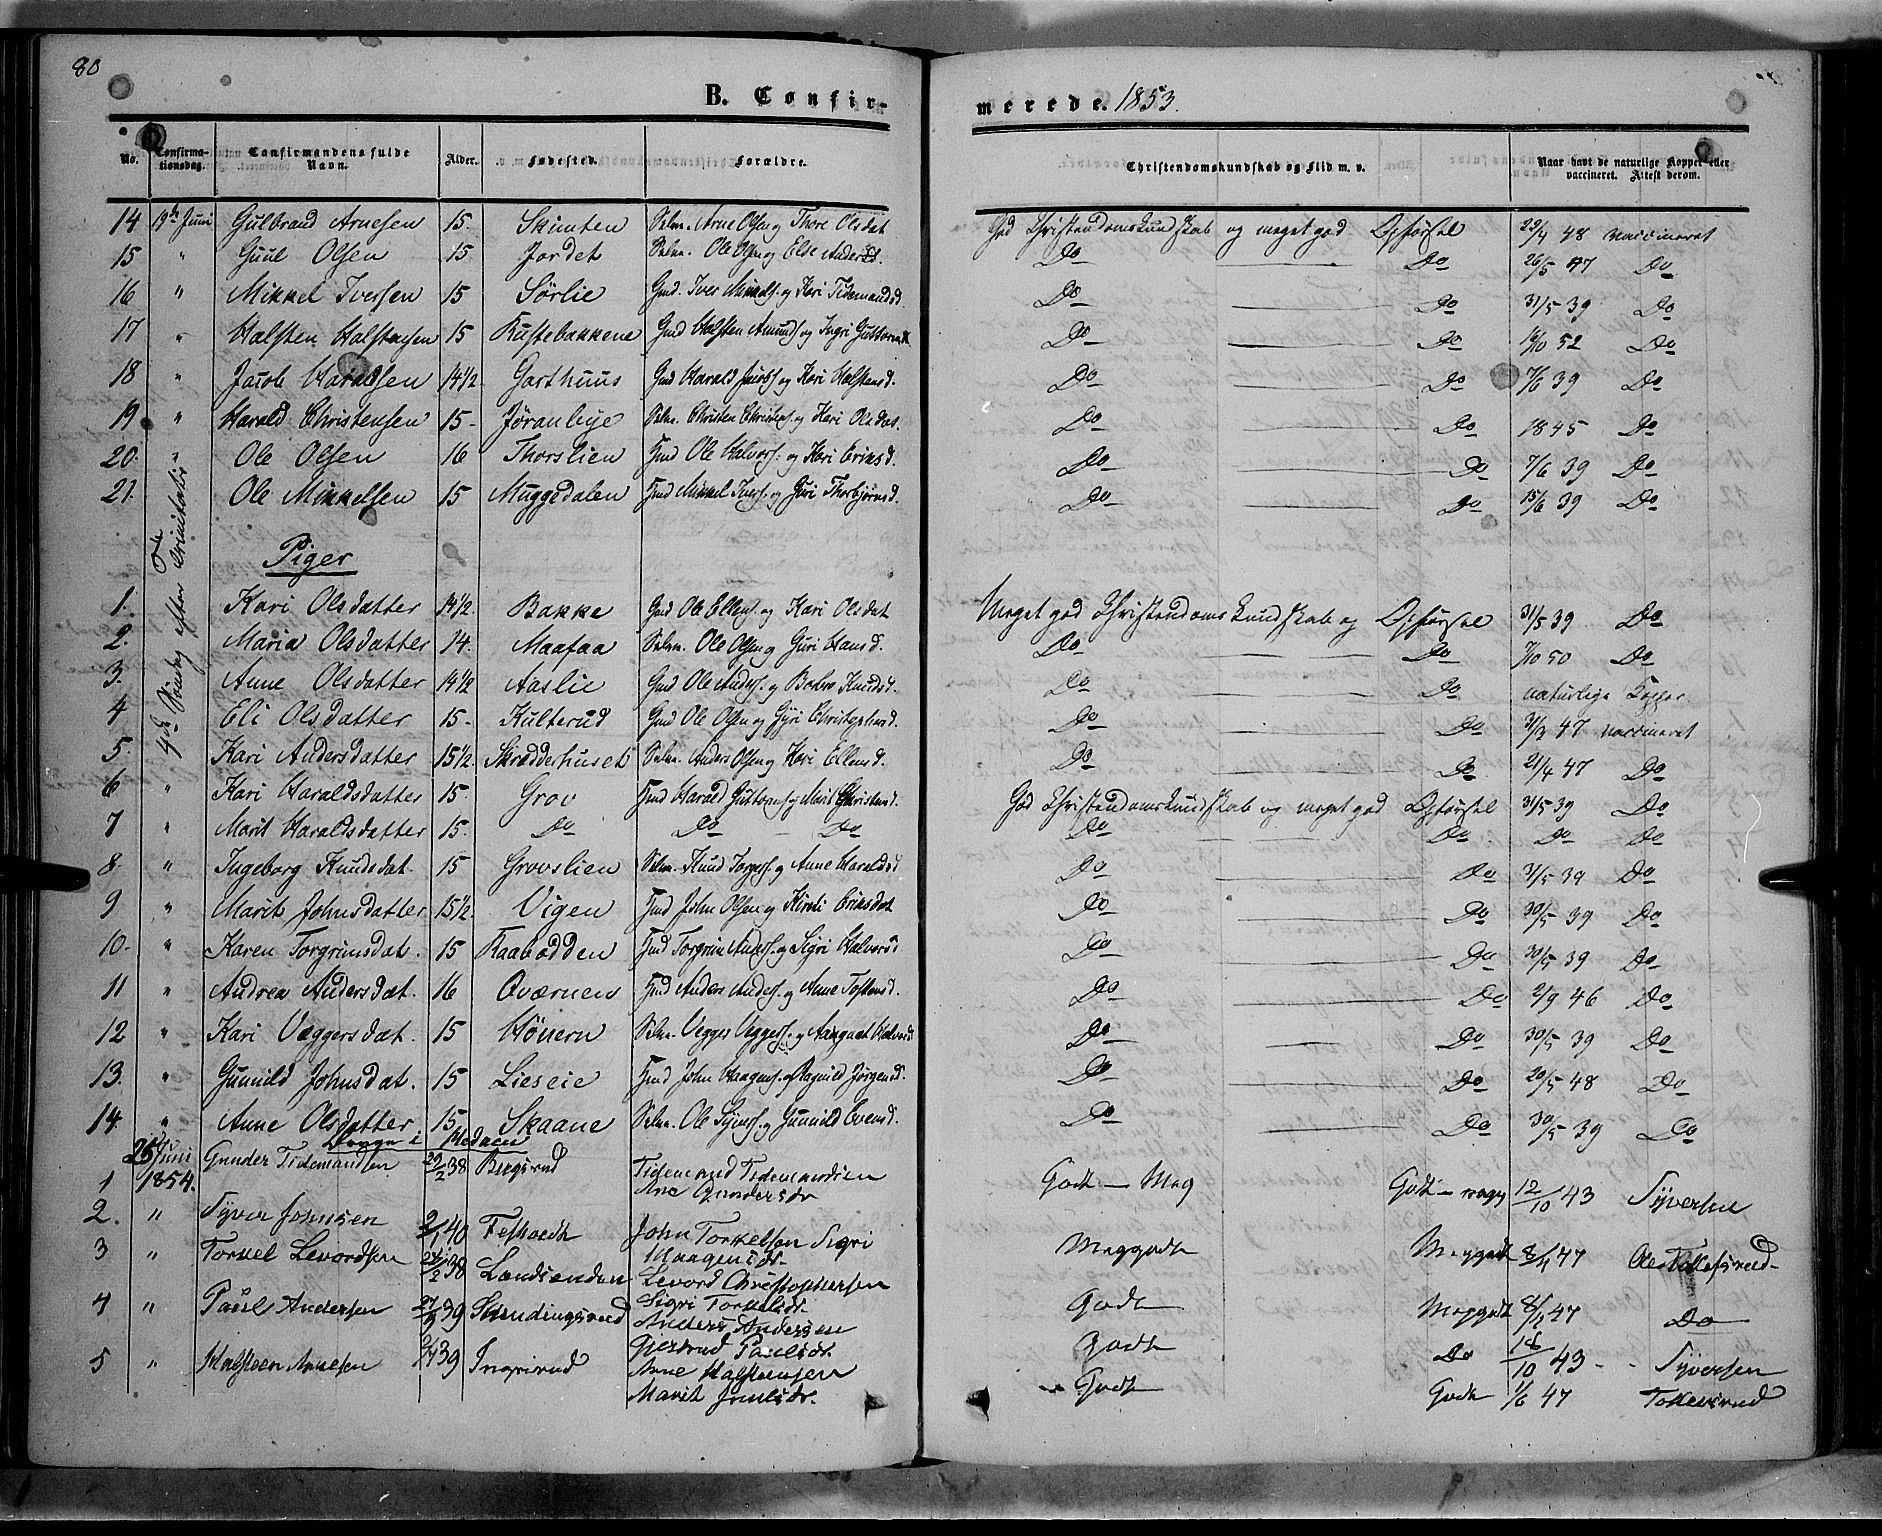 80
B. Confir-
merede. 1853.
No. Confirma-tionsdag. Confirmandens fulde Navn. Alder. Fødested. Forældre. Christendomskundskab og Flid m. v. Naar havt de naturlige Kopper eller vaccineret. Attest derom.
14 19de Juni Gulbrand Arnesen 15. Skinten Selve. Arne Olsen og Thore Olsdat God Christendomskundskab og meget god Opførsel 23/4 48 vaccineret
15 " Guul Olsen 15 Jordet Selve. Ole Olsen og Else Andersd. Do Do 26/5 47 Do
16 " Mikkel Iversen 15 Sørlie Gmd. Iver Mikkels. og Kari Tidemandsd Do Do 31/5 39 Do
17 " Halsten Halstensen 15 Kastebakkene Gmd Halsten Amunds. og Ingri Guttormsd Do Do 52 Do
18 " Jacob Haraldsen 14 1/2 Garthuus Gmd Harald Jacobs. og Kari Halstensd. Do Do 7/6 39 Do
19 " Harald Christensen 15 - Jøranlye Selve. Christen Christens. og Kari Olsdat. Do Do 1845 Do
20. " Ole Olsen 16 Thorslien Hmd Ole Halvors. og Kari Eriksd. Do Do 7/6 39 Do
21. Ole Mikkelsen 15 Muggedalen Hmd Mikkel Ivers. og Guri Thorbjørnsd. Do Do 15/6 39 Do
4de Søndag efter Trinitatis
Piger
1. Kari Olsdatter 14 1/2. Bakke Gmd Ole Ellens. og Kari Olsdat Meget god Christendomskundskab og Opførsel 31/5 39 Do
2. Maria Olsdatter 14. Maafaa Selve. Ole Olsen og Guri Hansd. Do Do 7/10 50 Do
3. Anne Olsdatter 14 1/2 Aaslie Gmd Ole Anders. og Barbro Knudsd. Do Do naturlige Kopper
4 Eli Olsdatter 15 - Kulterud Gmd Ole Olsen og Gyri Christophersd. Do Do 31/3 47 vaccineret
5. Kari Andersdatter 15 1/2. Skrædderhuset Selve. Anders Olsen og Kari Ellensd. Do Do 21/4 47 Do
6 " Kari Haraldsdatter 15. Grov Hmd Harald Guttorms. og Marit Christensd. God Christendomskundskab og meget god Opførsel 31/5 39 Do
7 " Marit Haraldsdatter 15. Do Do - Do Do Do Do Do
8 " Ingeborg Knudsdat. 15 Grovslien Selve. Knud Torgers. og Anne Haraldsd Do Do 31/5 39 Do
9 " Marit Johnsdatter 15 1/2. Vigen Hmd John Olsen og Kirsti Eriksdat Do Do 30/5 39 Do
10. " Karen Torgrimsdat. 15 Raabødden Hmd Torgrim Anders. og Sigri Halvorsd Do Do 30/5 39 Do
11 " Andrea Andersdat. 16 Qværnen Hmd Anders Anders. og Anne Tostensd. Do Do 2/9 46 Do
12 " Kari Væggersdat. 15 Hønern Selve. Vegger Veggers. og Aargaat Halvorsd Do Do 30/5 39 Do
13. " Gunnild Johnsdat. 15 Lieseie Hmd John Haagens. og Ragnild Jørgensd. Do Do 20/5 48 Do
14. " Anne Olsdatter 15 Skaane Selve. Ole Syvers. og Gunnild Evensd. Do Do 30/5 39 Do
Drenge i Hedalen
1 25 Juni 1854. Gunder Tidemandsen 29/2 38 Bergsrud Tidemand Tidemandsen Ane Gundersdr Godt - Meg Godt - meg 12/10 43 Syversen
2. " Syver Johnsen 2/1 40 Feskoedt John Torkelsen Sigri Haagensdr. Meggodt Meggodt 8/1 47
3 " Torkel Levordsen 24/2 38 Landsenden Levord Christophersen Sigri Torkelsdr. Godt Meggodt 8/1 47 Do
4 " Paul Andersen 39 Strendingsrud Anders Andersen Gjertrud Paulsdr. Godt Do 16/10 43 - Syversen
5 " Halsteen Arnesen 39 Ingrisrud Arne Halstensen Marit Joensdr. Godt Godt 1/6 47 Tollevsrud